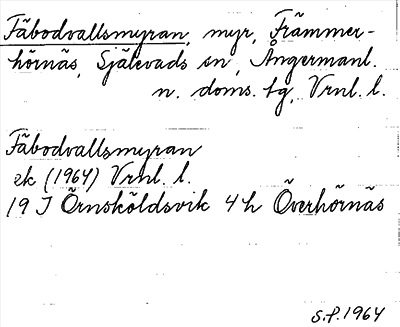 Fäbodvallsmyran, myr, Främmer-
hörnäs, Själevads sn, Ångermanl.
n. doms. tg, Vrnl. l.
Fäbodvallsmyran
ek (1964) Vrnl. l.
19 J Örnsköldsvik 4 h Överhörnäs
S.P. 1964